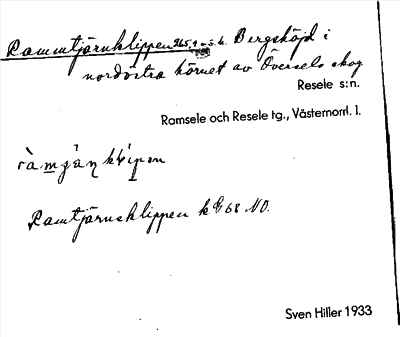 Rammtjärnklippen 265,9 m ö. h. Bergshöjd i
nordöstra hörnet av Översels skog
Resele s:n.
Ramsele och Resele tg., Västernorrl. l.
Ramtjärnsklippen k 68 NO.
Sven Hiller 1933